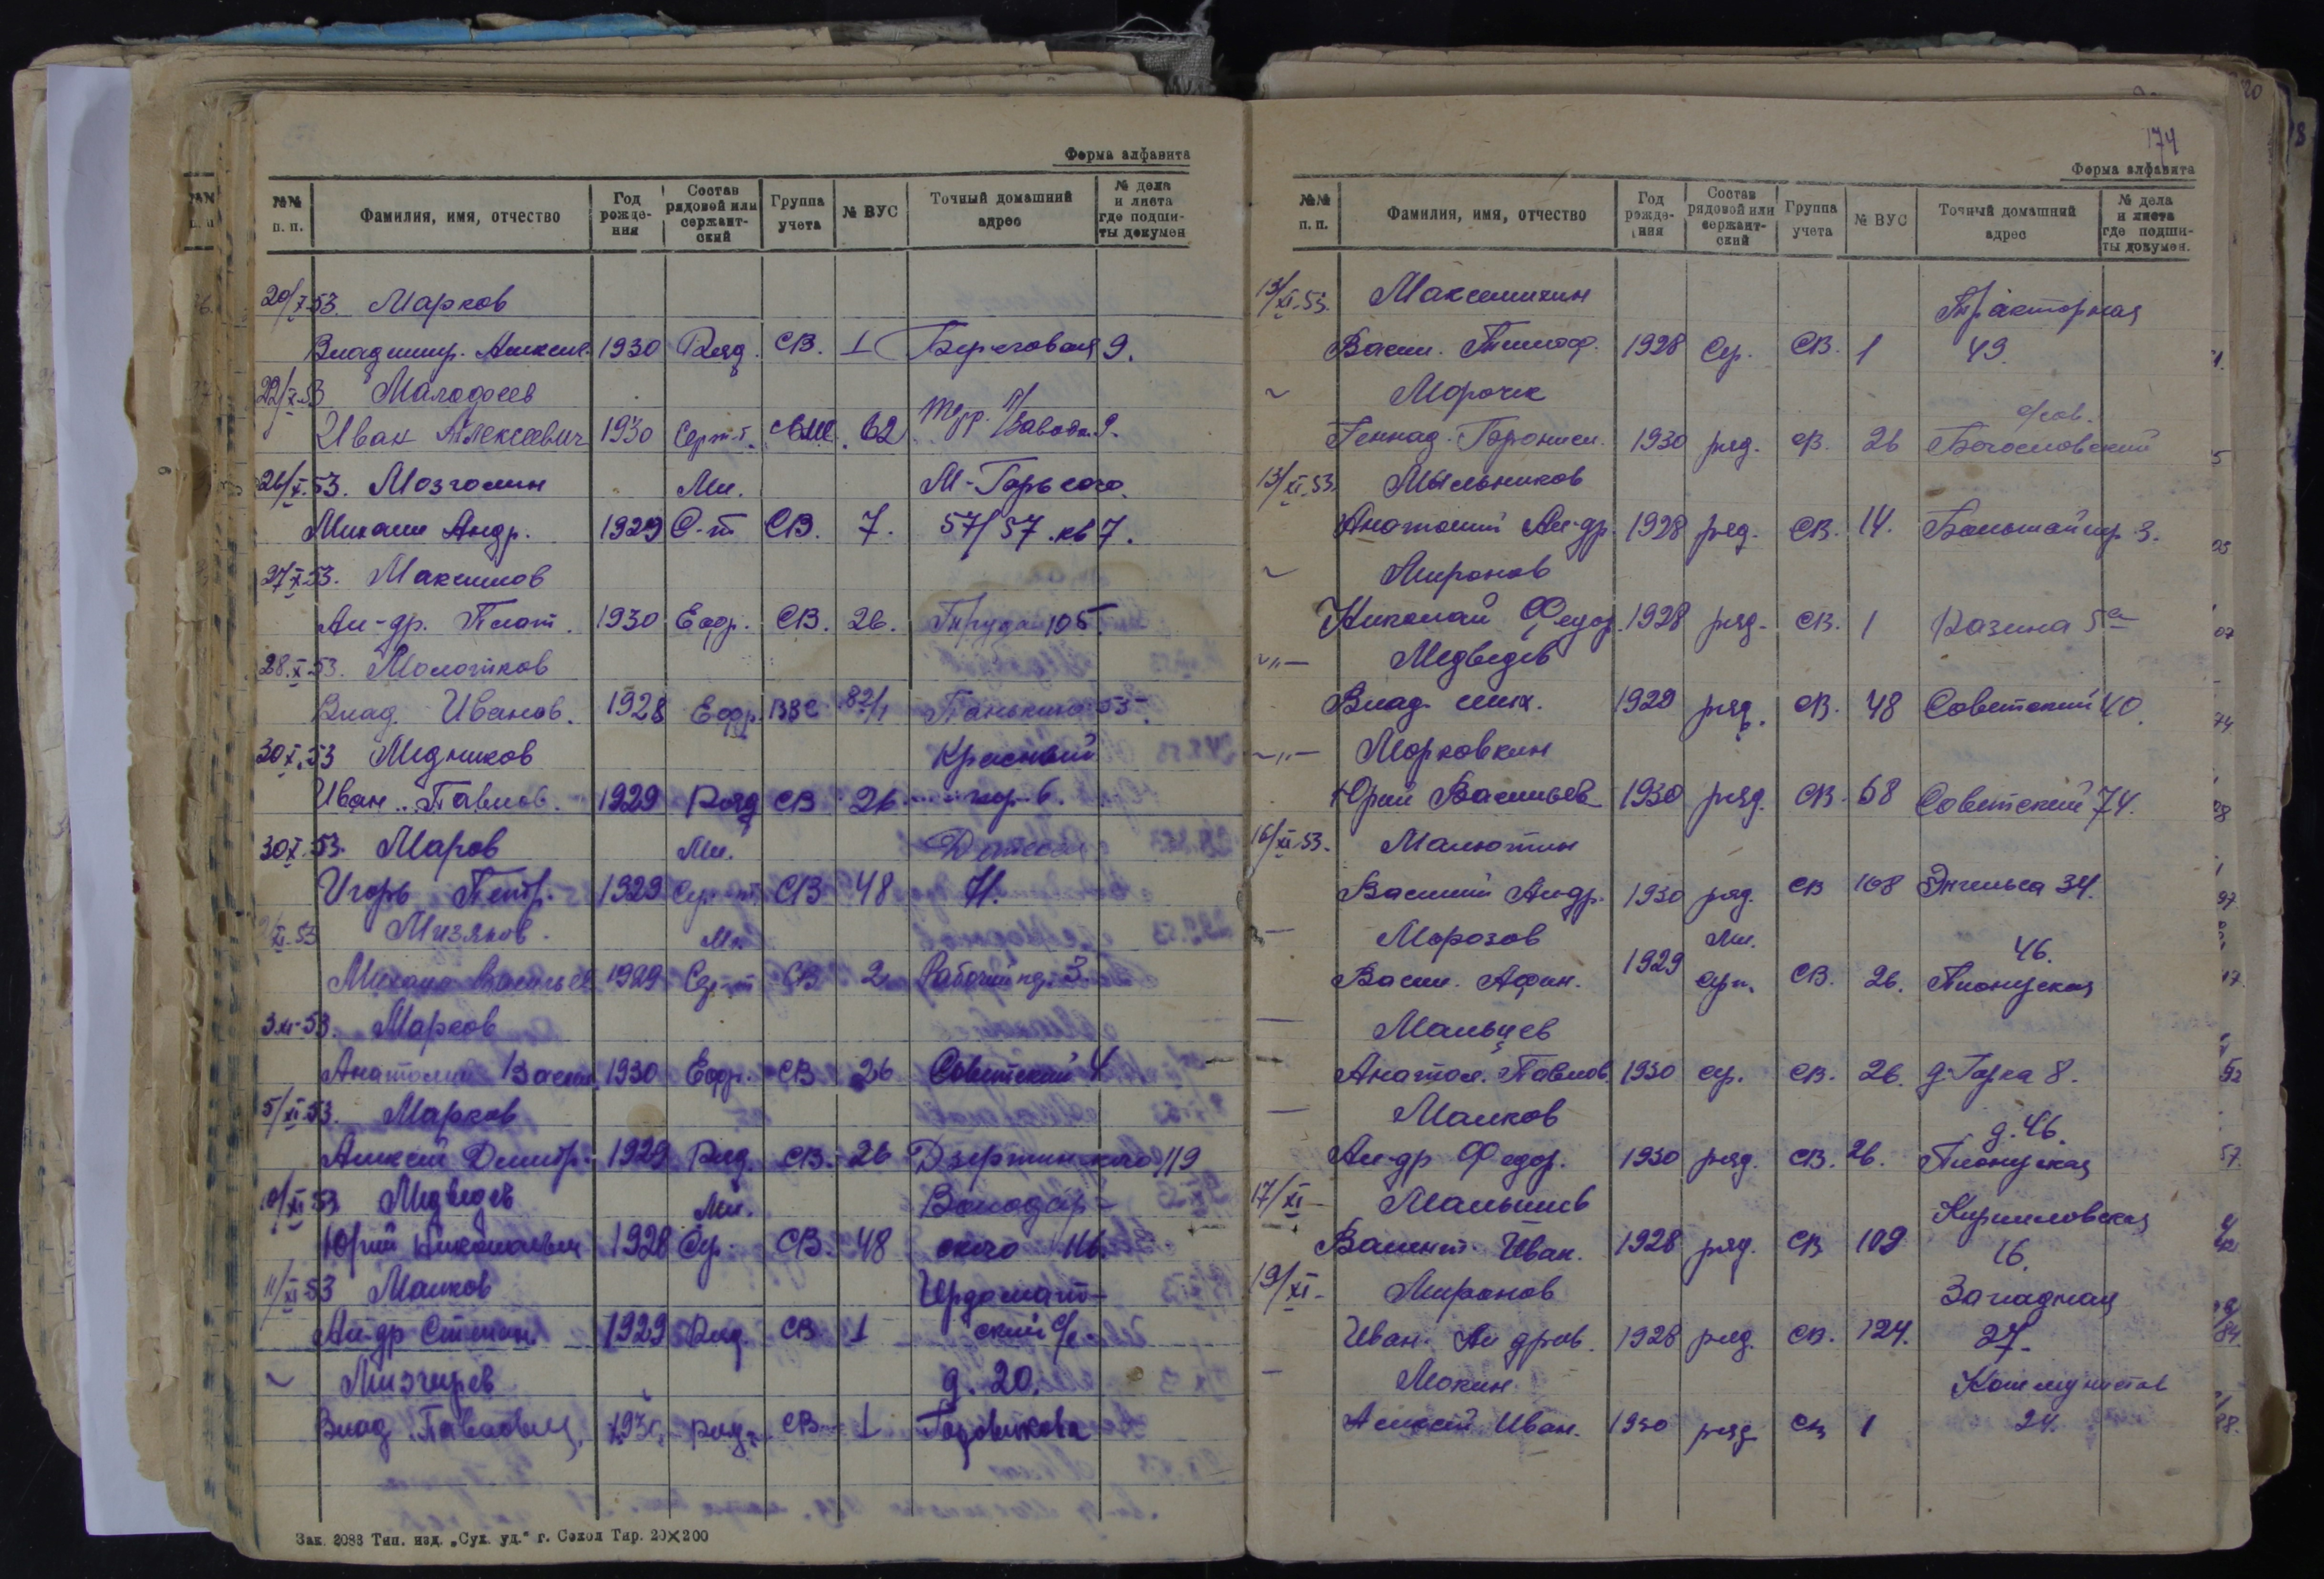 Форма алфавита
№№ п. п. Фамилия, имя, отчество Год рожде-ния Состав рядовой или сержант-ский Группа учета № ВУС Точный домашний адрес № дела и листа где подши-ты докумен
20/X 53. Марков
Владимир. Алексе. 1930 Ряд. СВ. 1 Береговая 9.
22/X 53 Малофеев
Иван Алексеевич 1930 Серж-т. 62 Терр. П/Завода 9.
26/X 53. Мозголин Мл. М-Горького.
Михаил Андр. 1929 С-т СВ. 7. 57/57 кв 7.
27/X 53. Максимов
Ал-др. Плат. 1930 Ефр. СВ. 26. Труда 105.
28.X 53. Молотков
Влад. Иванов. 1928 Ефр. ВВС 82/1 Панькина 53.
30 X. 53 Медников Красный
Иван Павлов. 1929 Ряд СВ 26 пер. 6.
30 X. 53. Маров Мл.
Игорь Петр. 1929 Сер-т СВ 48 71.
XI. 53 Мизяков. Мл.
Михаил Василье 1929 Сер-т СВ 2 Рабочий пр. 3.
3 XI-53. Марков
Анатолий Васил 1930 Ефр. СВ 26 Советский 4
5/XI 53. Марков
Алексей Дмитр. 1929 Ряд. СВ. 26 Дзержинского 119
10/XI 53 Медведев Мл. Володар-
Юрий Николаевич 1928 Сер. СВ. 48 ского 116.
11/XI 53 Малков Ирдомат-
Ал-др Степан. 1929 Ряд. СВ 1 ский с/с.
~ Мизгирев д. 20.
Влад. Павлович, 1930, ряд. СВ 1 Говоркова
Зак. 2088 Тип. изд. „Сух. уд.“ г. Сокол Тир. 20×200
174
Форма алфавита
№№ п. п. Фамилия, имя, отчество Год рожде-ния Состав рядовой или сержант-ский Группа учета № ВУС Точный домашний адрес № дела и листа где подши-ты докумен.
13/XI-53. Максимихин Тракторная
Васил. Тимоф. 1928 Сер. СВ. 1 49.
~ Морочек
Геннад. 1930 ряд. СВ. 26 Богословский
13/XI-53. Мыльников
Анатолий Ал-др. 1928 ряд. СВ. 14. Большой пер 3.
~ Миронов
Николай Федор. 1928 ряд. СВ. 1 Разина 5а
~"— Медведев
Влад. мих. 1929 ряд. СВ. 48 Советский 40.
~"— Морковкин
Юрий Васильев 1930 ряд. СВ. 68 Советский 74.
16/XI-53. Малютин
Василий Андр. 1930 ряд. СВ 108 Энгельса 34.
— Морозов Мл. 46.
Васил. Афан. 1929 сер. СВ. 26. Пионерская
— Мальцев
Анатол. Павлов. 1930 ср. СВ. 26. д. Горка 8.
— Малков д. 46.
Ал-др Федор. 1930 ряд. СВ. 26. Пионерская
17/XI — Малышев Кирилловская
Валент. Иван. 1928 ряд. СВ 109 16.
19/XI- Миронов Западная
Иван. Ал дров. 1928 ряд. СВ. 124. 27.
— Мокин. Коммунистов
Алексей Иван. 1930 ряд СВ 1 24.